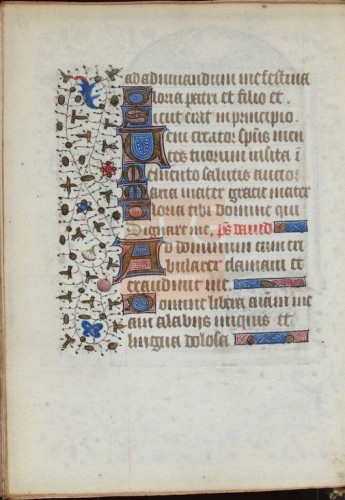 ad adiuuandum me festina
Gloria patri et filio et.
Sicut erat in principio.
Veni creator spūs men
tes tuorum visita ī
Memento salutis auctor
Maria mater gratie mater
Gloria tibi domine qui
Dignare me. ps dauid
Ad dominum cum tri
bularer clamaui et
exaudiuit me.
Domine libera aīam me
am a labijs iniquis et
lingua dolosa